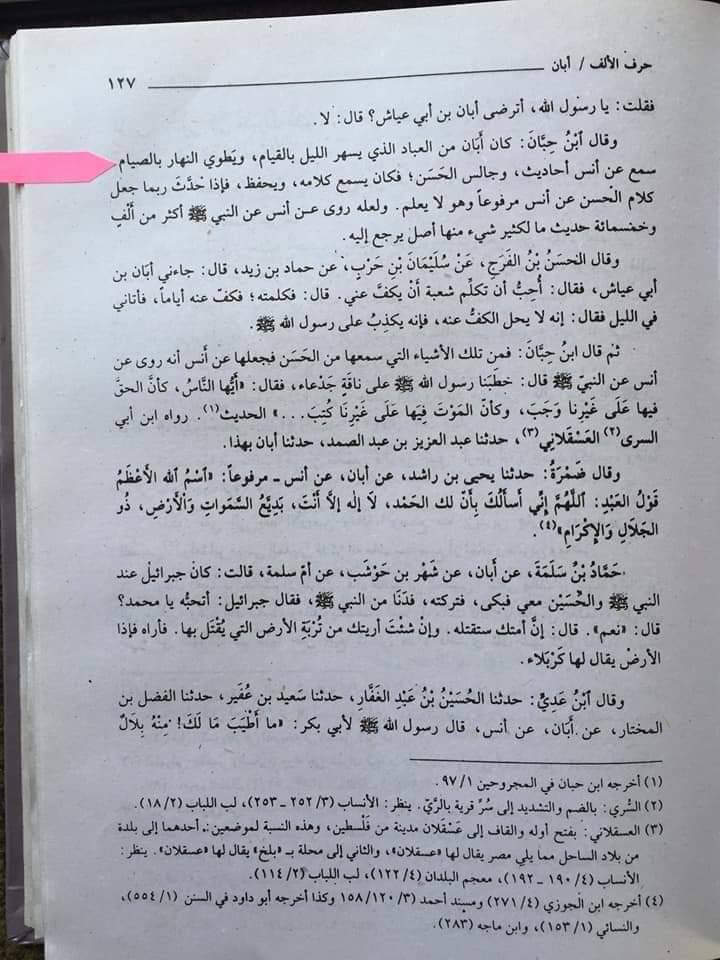 حرف الألف / أبان
١٢٧
فقلت: يا رسول الله، أترضى أبان بن أبي عياش؟ قال: لا.
وقال ٱبْنُ حِبَّانَ: كان أَبَان من العباد الذي يسهر الليل بالقيام، ويَطوي النهار بالصيام
سمع عن أنس أحاديث، وجالس الحَسَن؛ فكان يسمع كلامه، ويحفظ، فإذا حَدَّثَ ربما جعل
كلام الحْسن عن أنس مرفوعاً وهو لا يعلم. ولعله روى عن أنس عن النبي ﷺ أكثر من أَلْفِ
وخمسمائة حديث ما لكثير شيء منها أصل يرجع إليه.
وقال الحَسَنُ بْنُ الفَرَجِ، عَنْ سُلَيْمَانَ بْنِ حَرْبٍ، عن حماد بن زيد، قال: جاءني أبَان بن
أبي عياش، فقال: أُحِبُّ أن تكلِّم شعبة أَنْ يكفَّ عني. قال: فكلمته؛ فكفّ عنه أياماً، فأتاني
في الليل فقال: إنه لا يحل الكفُّ عنه، فإنه يكذِبُ على رسول الله ﷺ.
ثم قال ابنُ حِبَّانَ: فمن تلك الأشياء التي سمعها من الحَسَن فجعلها عن أَنس أنه روى عن
أنس عن النبيّ ﷺ قال: خطَبَنا رسول الله ﷺ على ناقَةٍ جَدْعاء، فقال: «أَيُّها النَّاسُ، كأنَّ الحقَّ
فيها عَلَى غَيْرِنا وَجَبَ، وكأنّ المَوْتَ فِيهَا عَلَى غَيْرِنَا كُتِبَ...» الحديث(١). رواه ابن أبي
السرى(٢) العَسْقلاني(٣)، حدثنا عبد العزيز بن عبد الصمد، حدثنا أبان بهذا.
وقال ضَمْرَةُ: حدثنا يحيى بن راشد، عن أبان، عن أنس ـ مرفوعاً: «اسْمُ ٱلله الأَعْظَمُ
قَوْلُ العَبْدِ: ٱللَّهُمَّ إنِّي أسألُكَ بأنّ لك الحَمْد، لَا إِلٰه إلَّا أَنْتَ، بَدِيَعُ السَّمَواتِ وَالأَرْضِ، ذُو
الجَلَالِ وَالإِكْرَامِ»(٤).
حَمَّادُ بْنُ سَلَمَةَ، عن أَبان، عن شَهْر بن حَوْشَب، عن أمّ سلمة، قالت: كان جبرائيل عند
النبي ﷺ والحُسَيْن معي فبكى، فتركته، فدَنَا من النبي ﷺ، فقال جبرائيل: أتحبُّه يا محمد؟
قال: «نعم». قال: إنَّ أمتك ستقتله. وإنْ شئتَ أريتك من تُرْبَةِ الأرض التي يُقْتَل بها. فأراه فإذا
الأرضُ يقال لها كَرْبَلاء.
وقال ٱبْنُ عَدِيٍّ: حدثنا الحُسَيْنُ بْنُ عَبْدِ الغَفَّارِ، حدثنا سَعِيد بن عُفَير، حدثنا الفضل بن
المختار، عن أَبَان، عن أنس، قال رسول الله ﷺ لأبي بكر: «ما أطْيَبَ مَا لَكَ! مِنْهُ بِلَالٌ
(١) أخرجه ابن حبان في المجروحين ٩٧/١.
(٢) السُّري: بالضم والتشديد إلى سُرّ قرية بالريّ. ينظر: الأنساب (٢٥٢/٣ ـ ٢٥٣)، لب اللباب (١٨/٢).
(٣) العسقلاني: بفتح أوله والقاف إلى عَسْقَلان مدينة من فَلَسْطين، وهذه النسبة لموضعين: أحدهما إلى بلدة
من بلاد الساحل مما يلي مصر يقال لها «عسقلان»، والثاني إلى محلة بـ «بلخ» يقال لها «عسقلان». ينظر:
الأنساب (١٩٠/٤ ـ ١٩٢)، معجم البلدان (١٢٢/٤)، لب اللباب (١١٤/٢).
(٤) أخرجه ابن الجوزي (٢٧١/٤) ومسند أحمد ١٢٠/٣، ١٥٨ وكذا أخرجه أبو داود في السنن (٥٥٤/١)،
والنسائي (١٥٣/١)، وابن ماجه (٢٨٣).